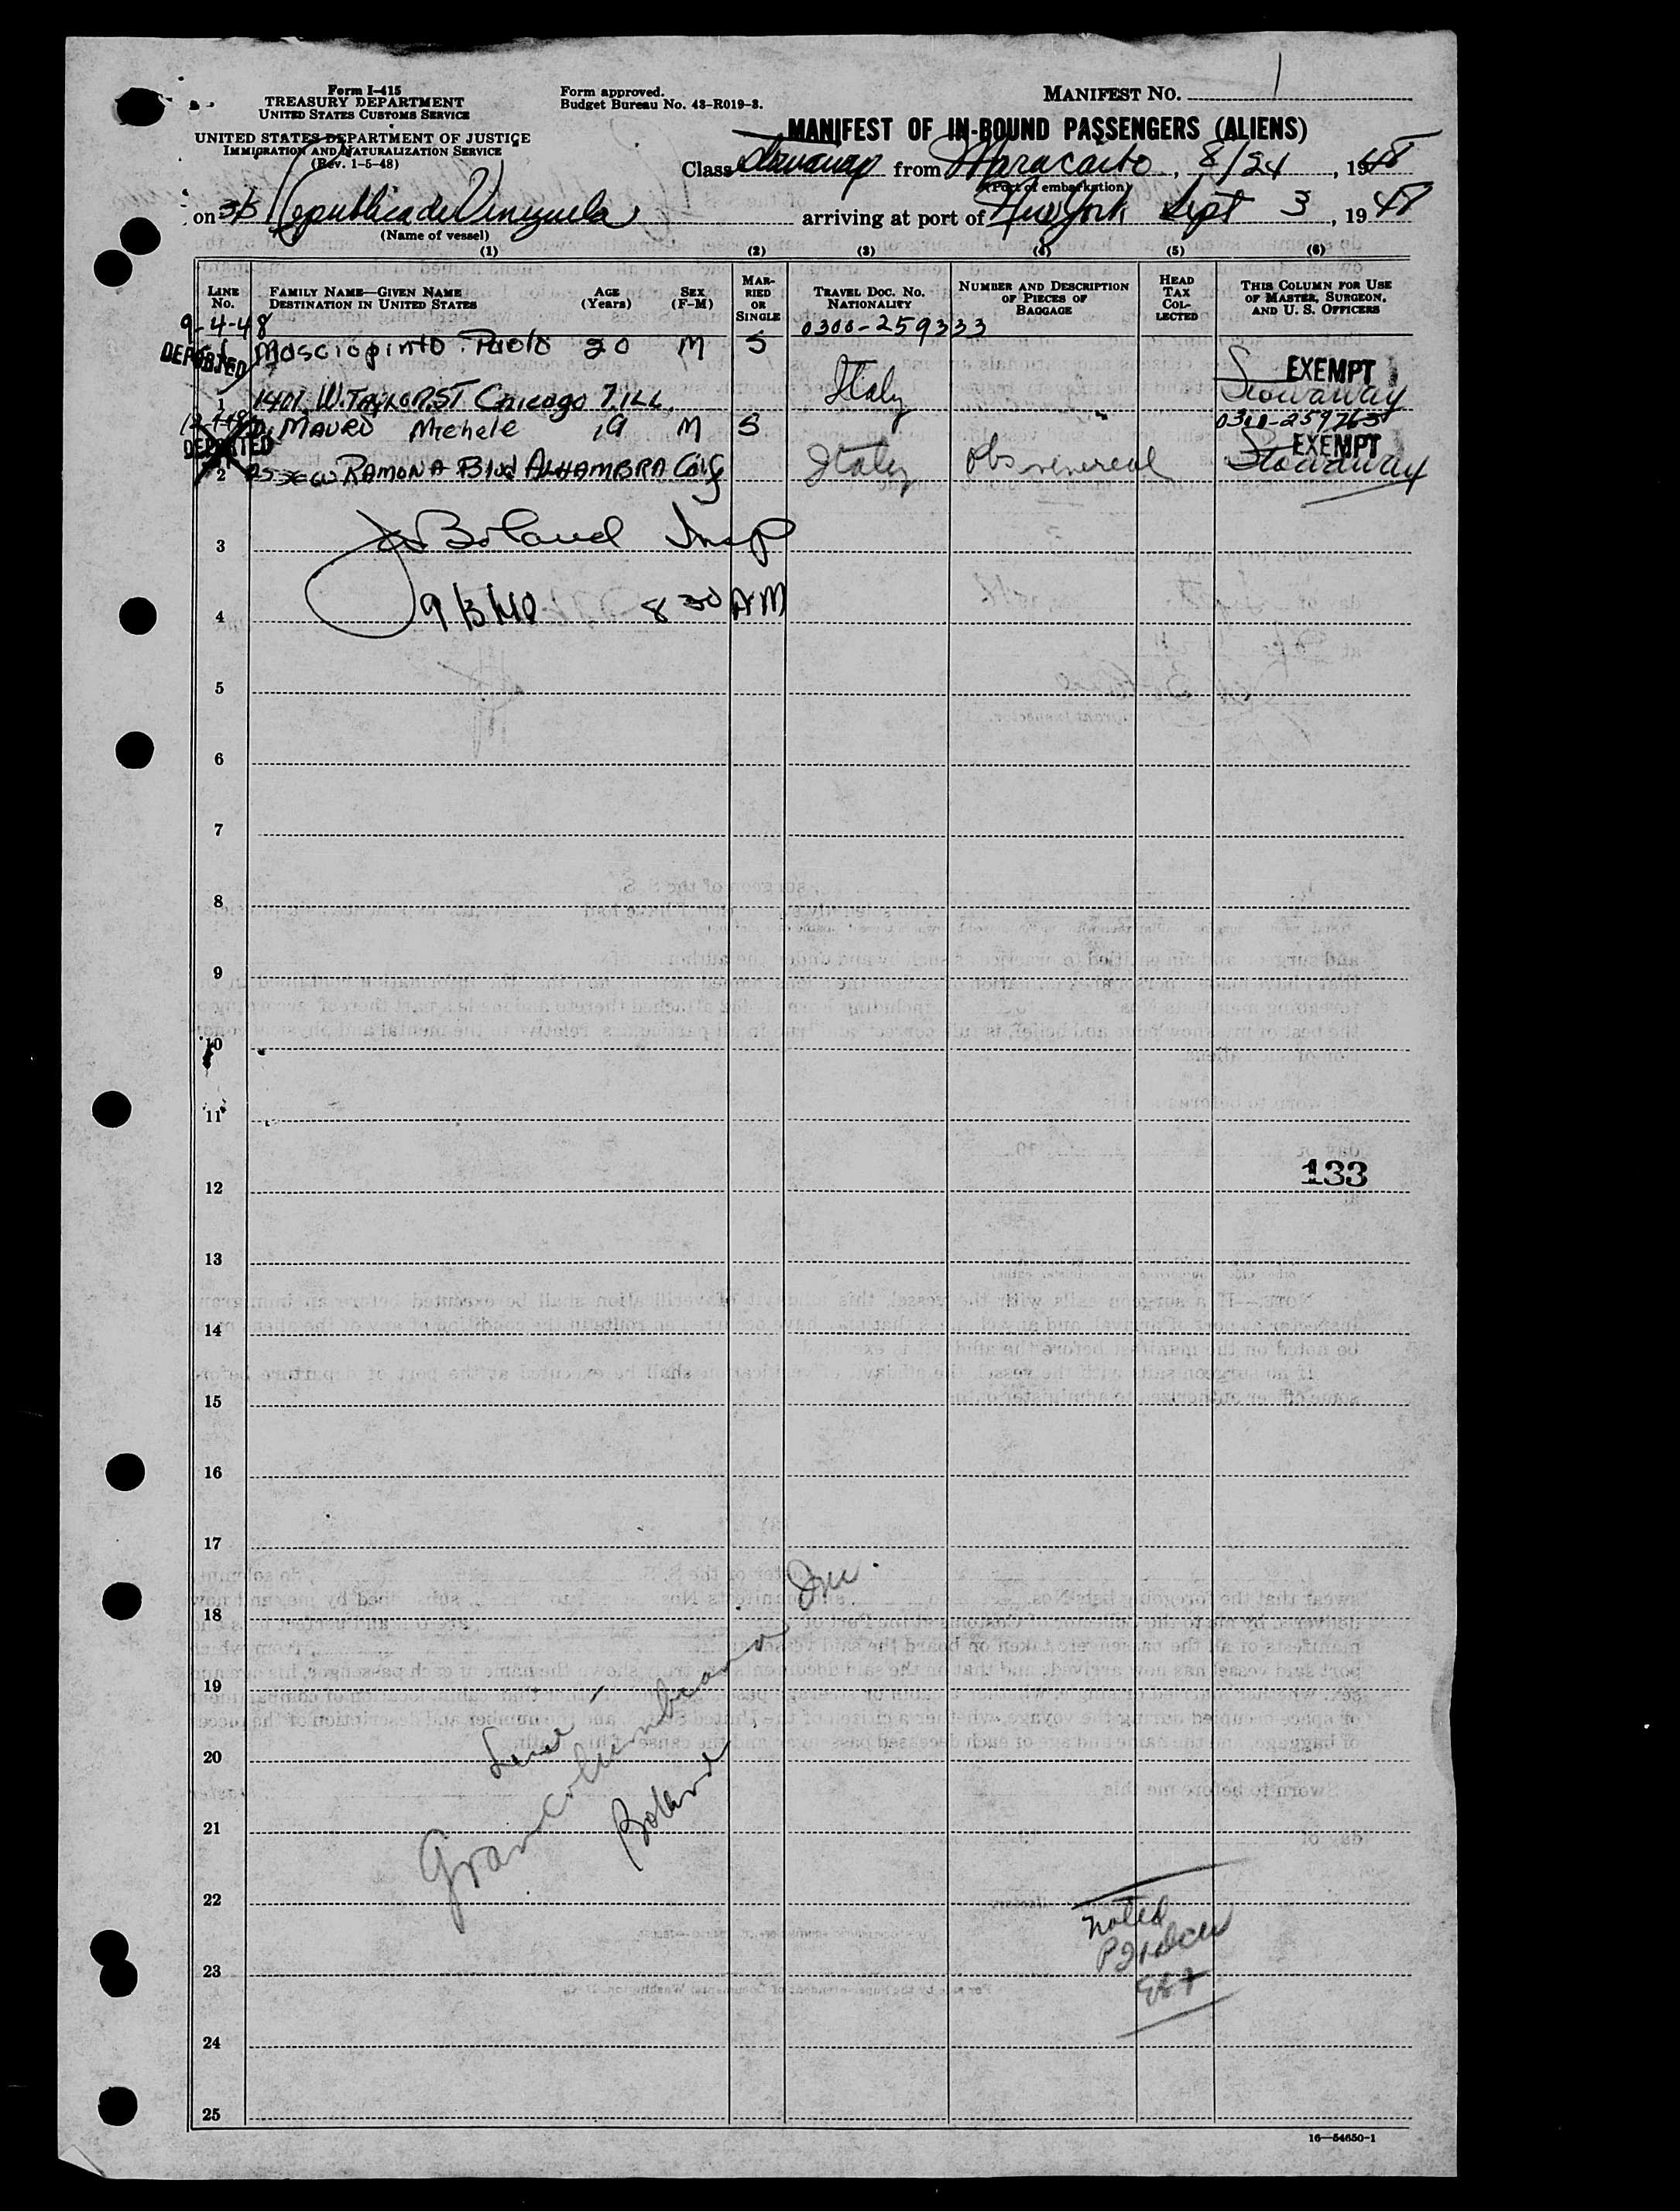 Form I-415
TREASURY DEPARTMENT
UNITED STATES CUSTOMS SERVICE
UNITED STATES DEPARTMENT OF JUSTICE
IMMIGRATION AND NATURALIZATION SERVICE
(Rev. 1-5-48)
Form approved.
Budget Bureau No. 43-R019-3.
MANIFEST NO. 1
MANIFEST OF IN-BOUND PASSENGERS (ALIENS)
Class Stowaway from Maracaibo, 8/24, 1948
(Port of embarkation)
on S/S Republica de Venezuela arriving at port of New York Sept 3, 1948
(Name of vessel)
(1) (2) (3) (4) (5) (6)
LINE No.
FAMILY NAME—GIVEN NAME
DESTINATION IN UNITED STATES
AGE (Years)
SEX (F-M)
MARRIED OR SINGLE
TRAVEL DOC. NO.
NATIONALITY
NUMBER AND DESCRIPTION OF PIECES OF BAGGAGE
HEAD TAX COLLECTED
THIS COLUMN FOR USE OF MASTER, SURGEON, AND U. S. OFFICERS
9-4-48 0300-259333
DEPORTED Masciopinto Paolo 20 M S EXEMPT
1 1407 W. TAYLOR ST Chicago 7. ILL. Italy Stowaway
Di MAURO Michele 19 M S 0300-259763
DEPORTED EXEMPT
2 RAMONA Blvd ALHAMBRA Calif Italy Obs venereal Stowaway
3 Boland Insp
4 9/3/48 8 30 AM
5
6
7
8
9
10
11
12 133
13
14
15
16
17
18 Inc.
19
20 Line
Grancolumbiana
21 Boland
22
noted
23
24
25
16—54650-1